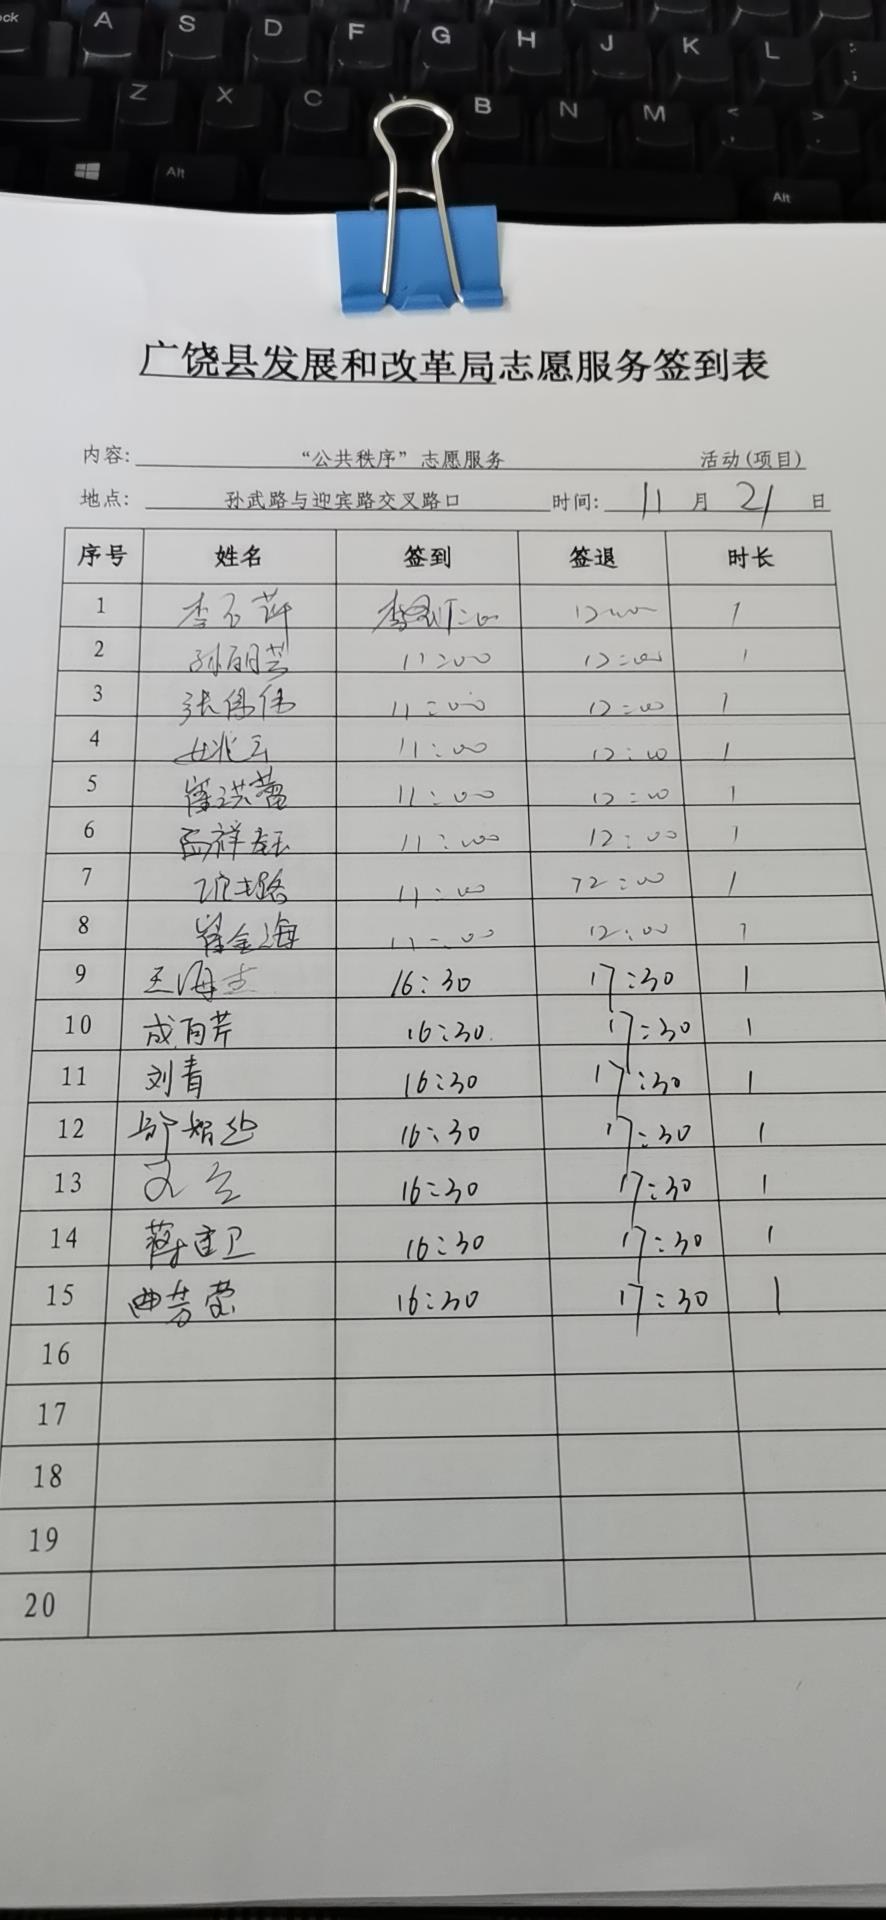 A S D F G H J K L
Z X C V B N M < >
Alt Alt
广饶县发展和改革局志愿服务签到表
内容: “公共秩序”志愿服务 活动(项目)
地点: 孙武路与迎宾路交叉路口 时间: 11 月 21 日
序号 姓名 签到 签退 时长
1 12:00 1
2 孙丽芸 11:00 12:00 1
3 张伟 11:00 12:00 1
4 11:00 12:00 1
5 崔洪蕾 11:00 12:00 1
6 孟祥钰 11:00 12:00 1
7 11:00 12:00 1
8 崔金海 11:00 12:00 1
9 王海 16:30 17:30 1
10 成百芹 16:30 17:30 1
11 刘青 16:30 17:30 1
12 16:30 17:30 1
13 16:30 17:30 1
14 蒋建卫 16:30 17:30 1
15 曲芳莹 16:30 17:30 1
16
17
18
19
20